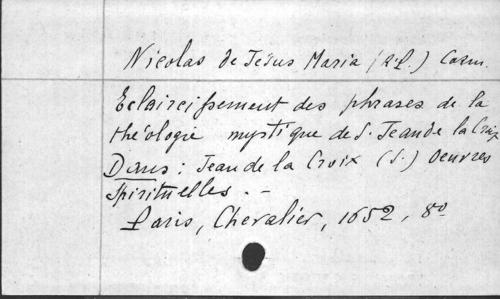 Nicolas de Jésus Maria (R.P.) Carm.
Eclaircissement des phrases de la
théologie mystique de S. Jean de la Croix
Dans : Jean de la Croix (S.) Oeuvres
Spirituelles. -
Paris, Chevalier, 1652, 8º